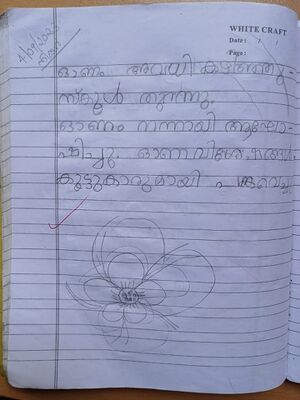 WHITE CRAFT
Date :
Page :
4/09/2023
തിങ്കൾ
ഓണം അവധി കഴിഞ്ഞു
സ്കൂൾ തുറന്നു.
ഓണം നന്നായി ആഘോ-
ഷിച്ചു. ഓണവിശേഷങ്ങൾ
കൂട്ടുകാരുമായി പങ്കുവെച്ചു